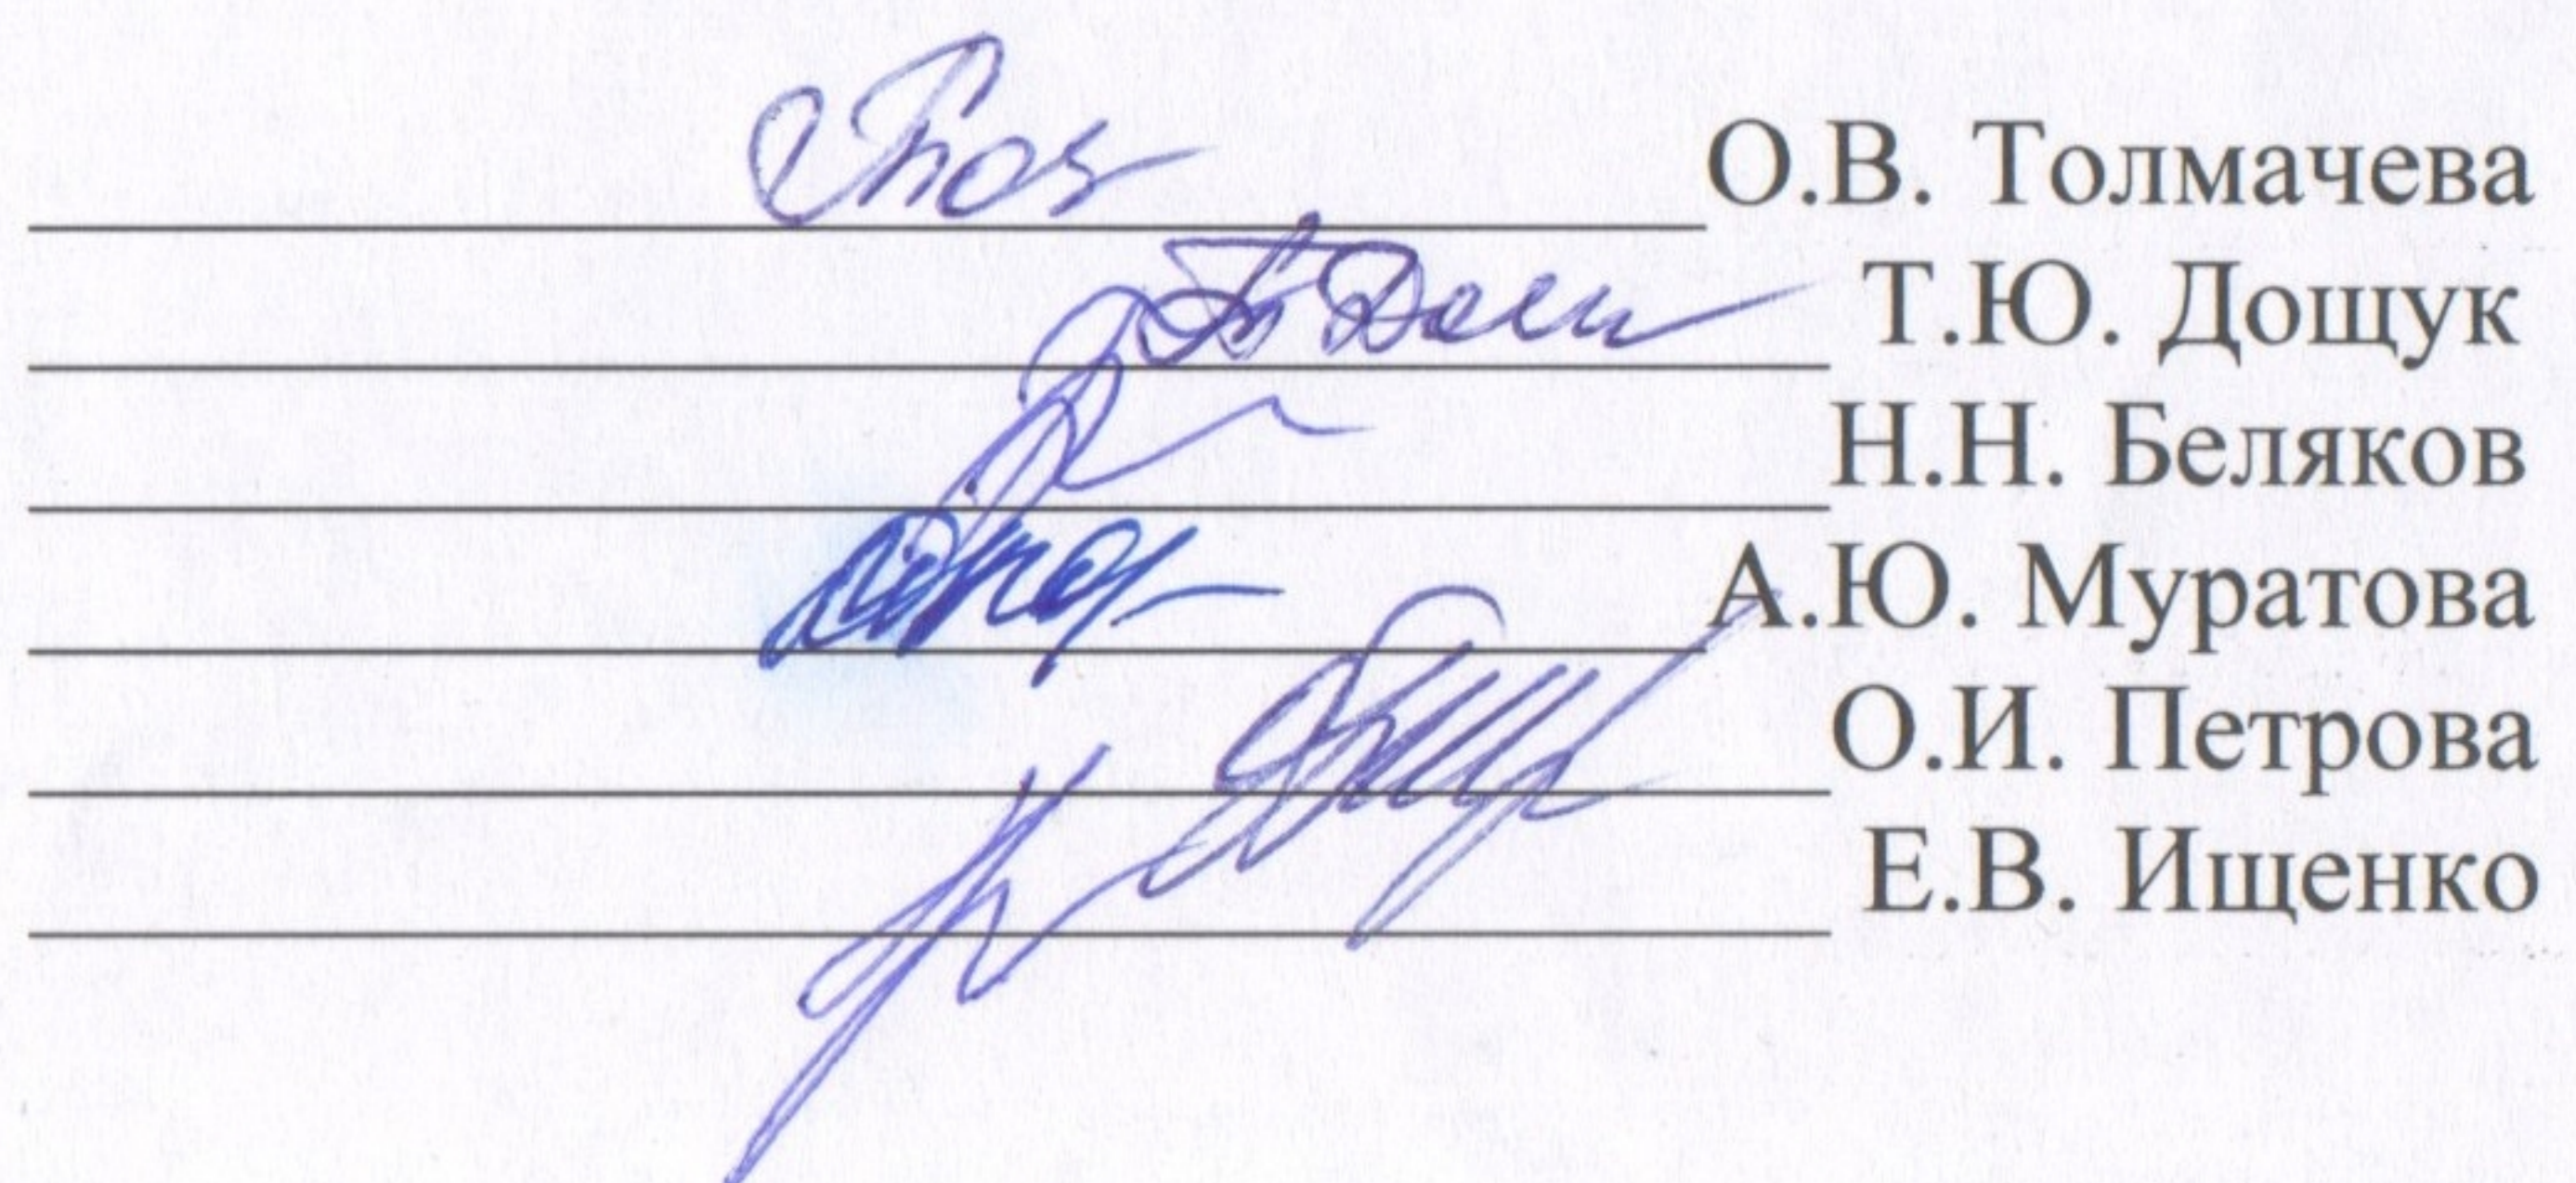 О.В. Толмачева
Т.Ю. Дощук
Н.Н. Беляков
А.Ю. Муратова
О.И. Петрова
Е.В. Ищенко